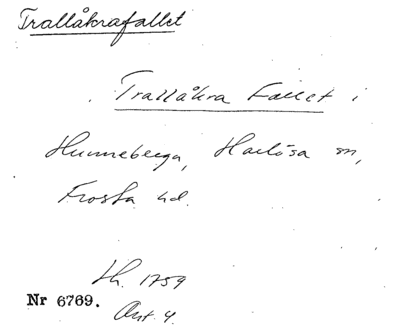 Trallåkrafallet
Trallåkra Fallet i
Hunneberga, Harlösa sn,
Frosta hd.
Lh. 1759
Nr 6769.
Akt 4.